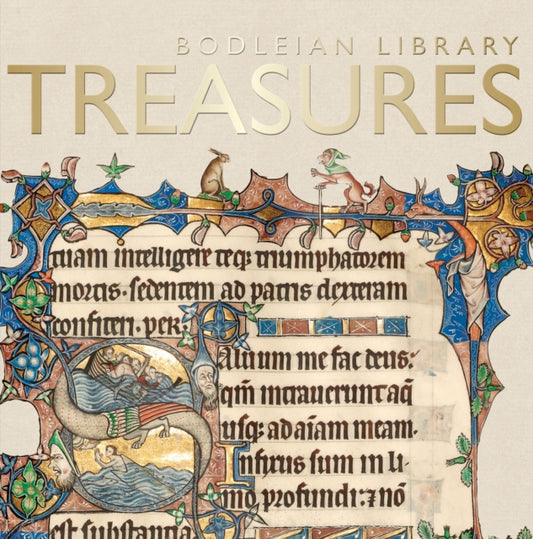 BODLEIAN LIBRARY
TREASURES
tuam intelligere teq; triumphatorem
mortis. sedentem ad patris dexteram
confiteri. per.
Saluum me fac deus:
qm̄ intrauerunt aq̄
usq; ad aīam meam.
Infixus sum in li-
mo profundi: ⁊ nō
est substantia